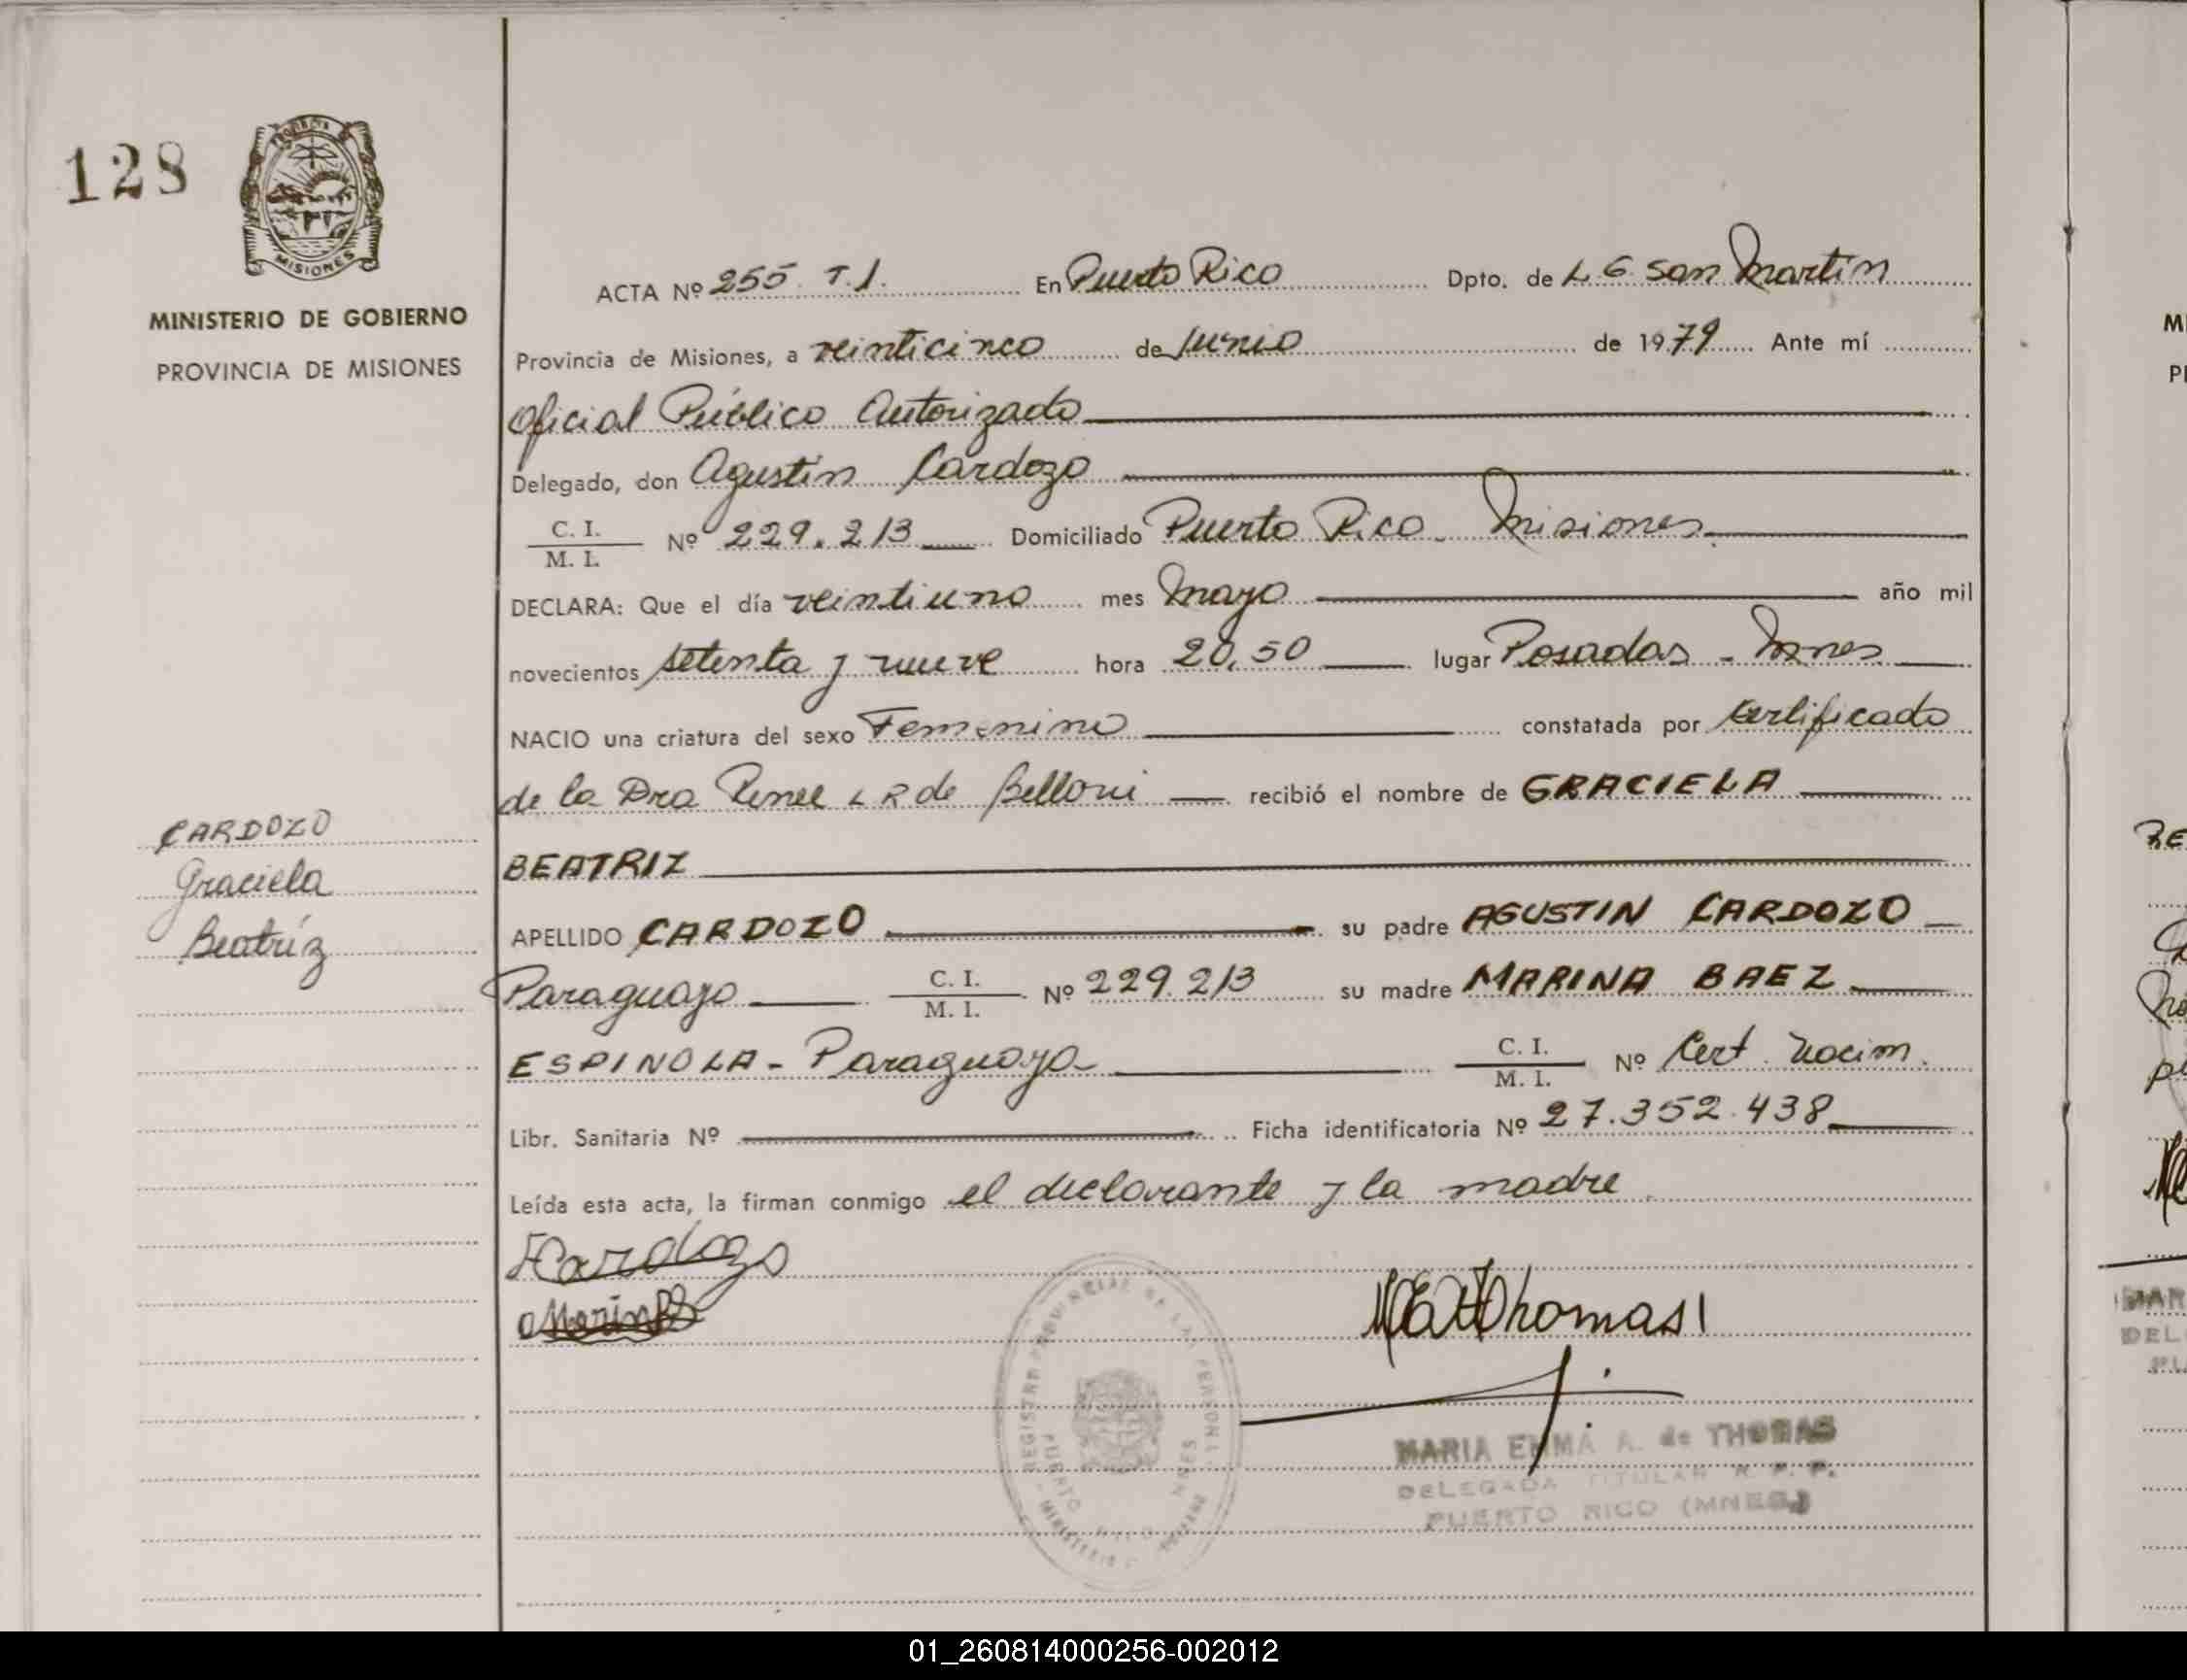 128
PROVINCIA
MISIONES
MINISTERIO DE GOBIERNO
PROVINCIA DE MISIONES
ACTA Nº 255. T.I. En Puerto Rico Dpto. de L. G. San Martin
Provincia de Misiones, a veinticinco de Junio de 1979 Ante mí
Oficial Público Autorizado
Delegado, don Agustin Cardozo
C. I.
M. I.
Nº 229.213 Domiciliado Puerto Rico - Misiones
DECLARA: Que el día veintiuno mes Mayo año mil
novecientos setenta y nueve hora 20,50 lugar Posadas - Mnes
NACIO una criatura del sexo Femenino constatada por Certificado
de la Dra Renee L R de Belloni recibió el nombre de GRACIELA
BEATRIZ
APELLIDO CARDOZO su padre AGUSTIN CARDOZO
Paraguayo C. I.
M. I.
Nº 229.213 su madre MARINA BAEZ
ESPINOLA - Paraguaya C. I.
M. I.
Nº Cert. Nacim.
Libr. Sanitaria Nº Ficha identificatoria Nº 27.352.438
Leída esta acta, la firman conmigo el declarante y la madre.
CARDOZO
Graciela
Beatríz
Cardozo
Thomas
REGISTRO PROVINCIAL DE LAS PERSONAS
PUERTO RICO MNES
MARIA EMMA A. de THOMAS
DELEGADA TITULAR R. P. P.
PUERTO RICO (MNES.)
01_260814000256-002012